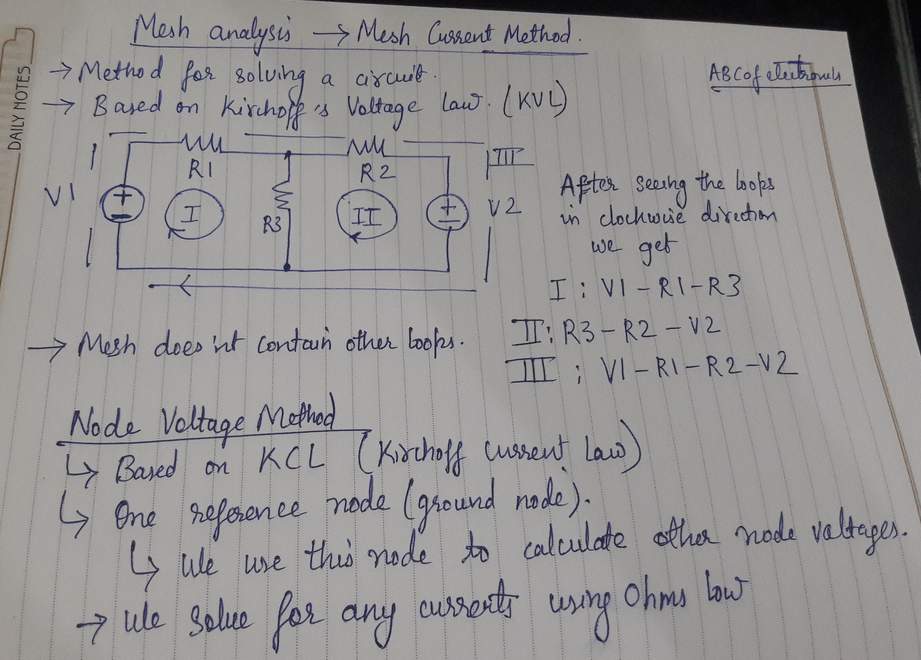 DAILY NOTES
Mesh analysis → Mesh Current Method.
ABC of electronics
→ Method for solving a circuit.
→ Based on Kirchoff's Voltage Law. (KVL)
R1
R2
III
V1
+
−
I
R3
II
+
−
V2
After seeing the loops
in clockwise direction
we get
I : V1 - R1 - R3
II : R3 - R2 - V2
III ; V1 - R1 - R2 - V2
→ Mesh does'nt contain other loops.
Node Voltage Method
↳ Based on KCL (Kirchoff Current Law)
↳ One reference node (ground node).
↳ We use this node to calculate other node voltages.
→ We solve for any currents using Ohms low